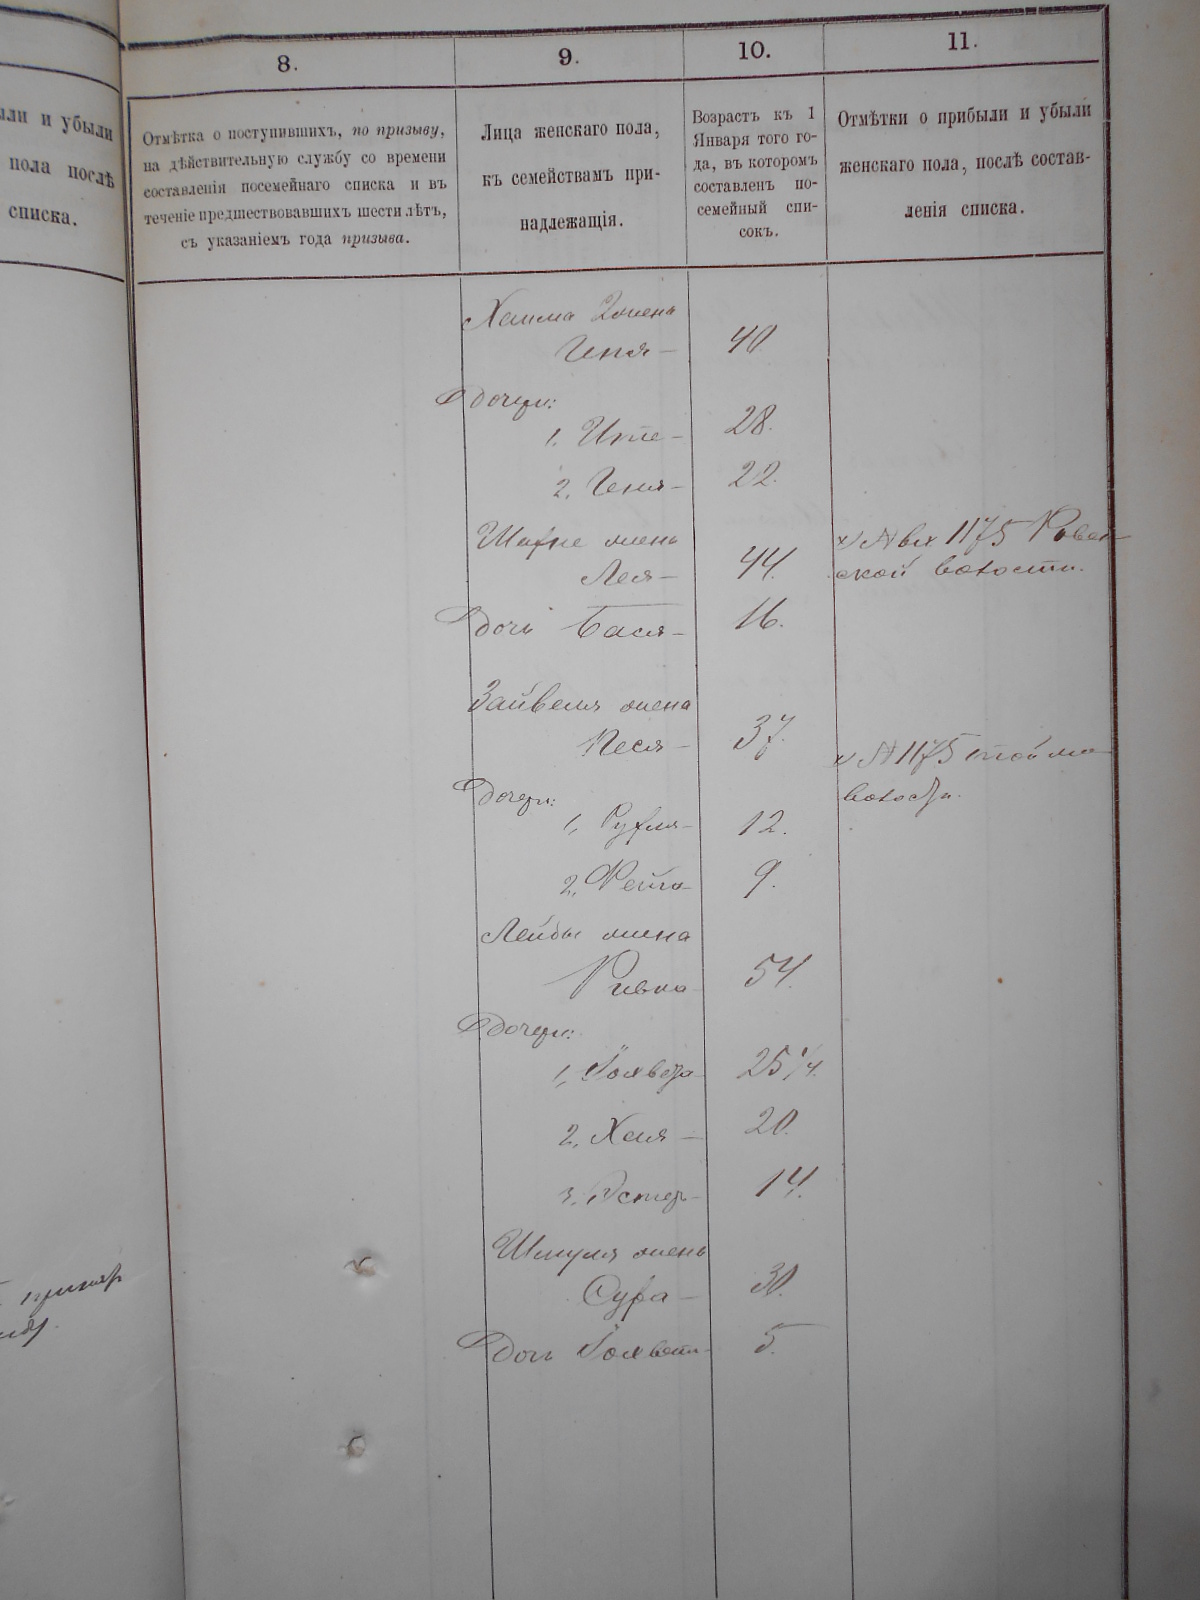 ыли и убыли
пола послѣ
списка.
8.
Отмѣтка о поступившихъ, по призыву,
на дѣйствительную службу со времени
составленія посемейнаго списка и въ
теченіе предшествовавшихъ шести лѣтъ,
съ указаніемъ года призыва.
9.
Лица женскаго пола,
къ семействамъ при-
надлежащія.
10.
Возрастъ къ 1
Января того го-
да, въ которомъ
составленъ по-
семейный спи-
сокъ.
11.
Отмѣтки о прибыли и убыли
женскаго пола, послѣ состав-
ленія списка.
Хаима жена
Геня — 40
Дочери:
1. Ите — 28.
2. Геня — 22.
жена
Лея — 44.
№ вх 1175 Рован
ской волости.
Дочь Бася — 16.
Зайвеля жена
Песя — 37.
№ 1175 той же
волости.
Дочери:
1, — 12.
2, Фейга 9.
Лейбы жена
Ривка 54.
Дочери:
1, 25 1/4.
2, Хая — 20.
3. Эстер — 14.
Шмуля жена
Сура — 30.
Дочь 5.